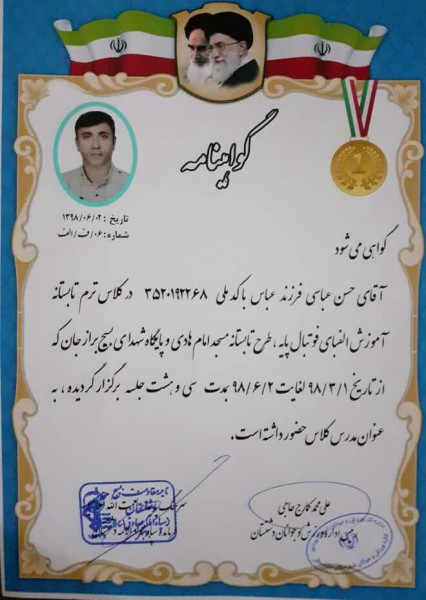 گواهینامه
تاریخ : ۱۳۹۸/۰۶/۰۲
شماره : ۰۶/ف/الف
1
گواهی می شود
آقای حسن عباسی فرزند عباس باکدملی ۳۵۲۰۱۹۲۲۶۸ در کلاس ترم تابستانه
آموزش الفبای فوتبال پایه ، طرح تابستانه مسجد امام هادی و پایگاه شهدای بسیج برازجان که
از تاریخ ۹۸/۳/۱ لغایت ۹۸/۶/۲ بمدت سی و هشت جلسه برگزار گردیده ، به
عنوان مدرس کلاس حضور داشته است.
علی محمد کارج حاجی
اداره ورزش و جوانان دشتستان